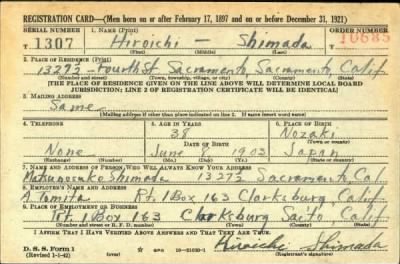 REGISTRATION CARD—(Men born on or after February 17, 1897 and on or before December 31, 1921)
SERIAL NUMBER 1. NAME (Print) ORDER NUMBER
T 1307 Hiroichi — Shimada 10685
(First) (Middle) (Last)
2. PLACE OF RESIDENCE (Print)
1327½ - Fourth St Sacramento, Sacramento, Calif
(Number and street) (Town, township, village, or city) (County) (State)
[THE PLACE OF RESIDENCE GIVEN ON THE LINE ABOVE WILL DETERMINE LOCAL BOARD
JURISDICTION; LINE 2 OF REGISTRATION CERTIFICATE WILL BE IDENTICAL]
3. MAILING ADDRESS
Same
[Mailing address if other than place indicated on line 2. If same insert word same]
4. TELEPHONE 5. AGE IN YEARS 6. PLACE OF BIRTH
38 Nozaki
DATE OF BIRTH (Town or county)
None June 8 1903 Japan
(Exchange) (Number) (Mo.) (Day) (Yr.) (State or country)
7. NAME AND ADDRESS OF PERSON WHO WILL ALWAYS KNOW YOUR ADDRESS
Shimada 1327½ Sacramento, Cal
8. EMPLOYER'S NAME AND ADDRESS
A. Tomita Rt. 1 Box 163 Clarksburg, Calif
9. PLACE OF EMPLOYMENT OR BUSINESS
Rt. 1 Box 163 Clarksburg Calif
(Number and street or R. F. D. number) (Town) (County) (State)
I AFFIRM THAT I HAVE VERIFIED ABOVE ANSWERS AND THAT THEY ARE TRUE.
D. S. S. Form 1
(Revised 1-1-42) Hiroichi Shimada
(Registrant's signature)